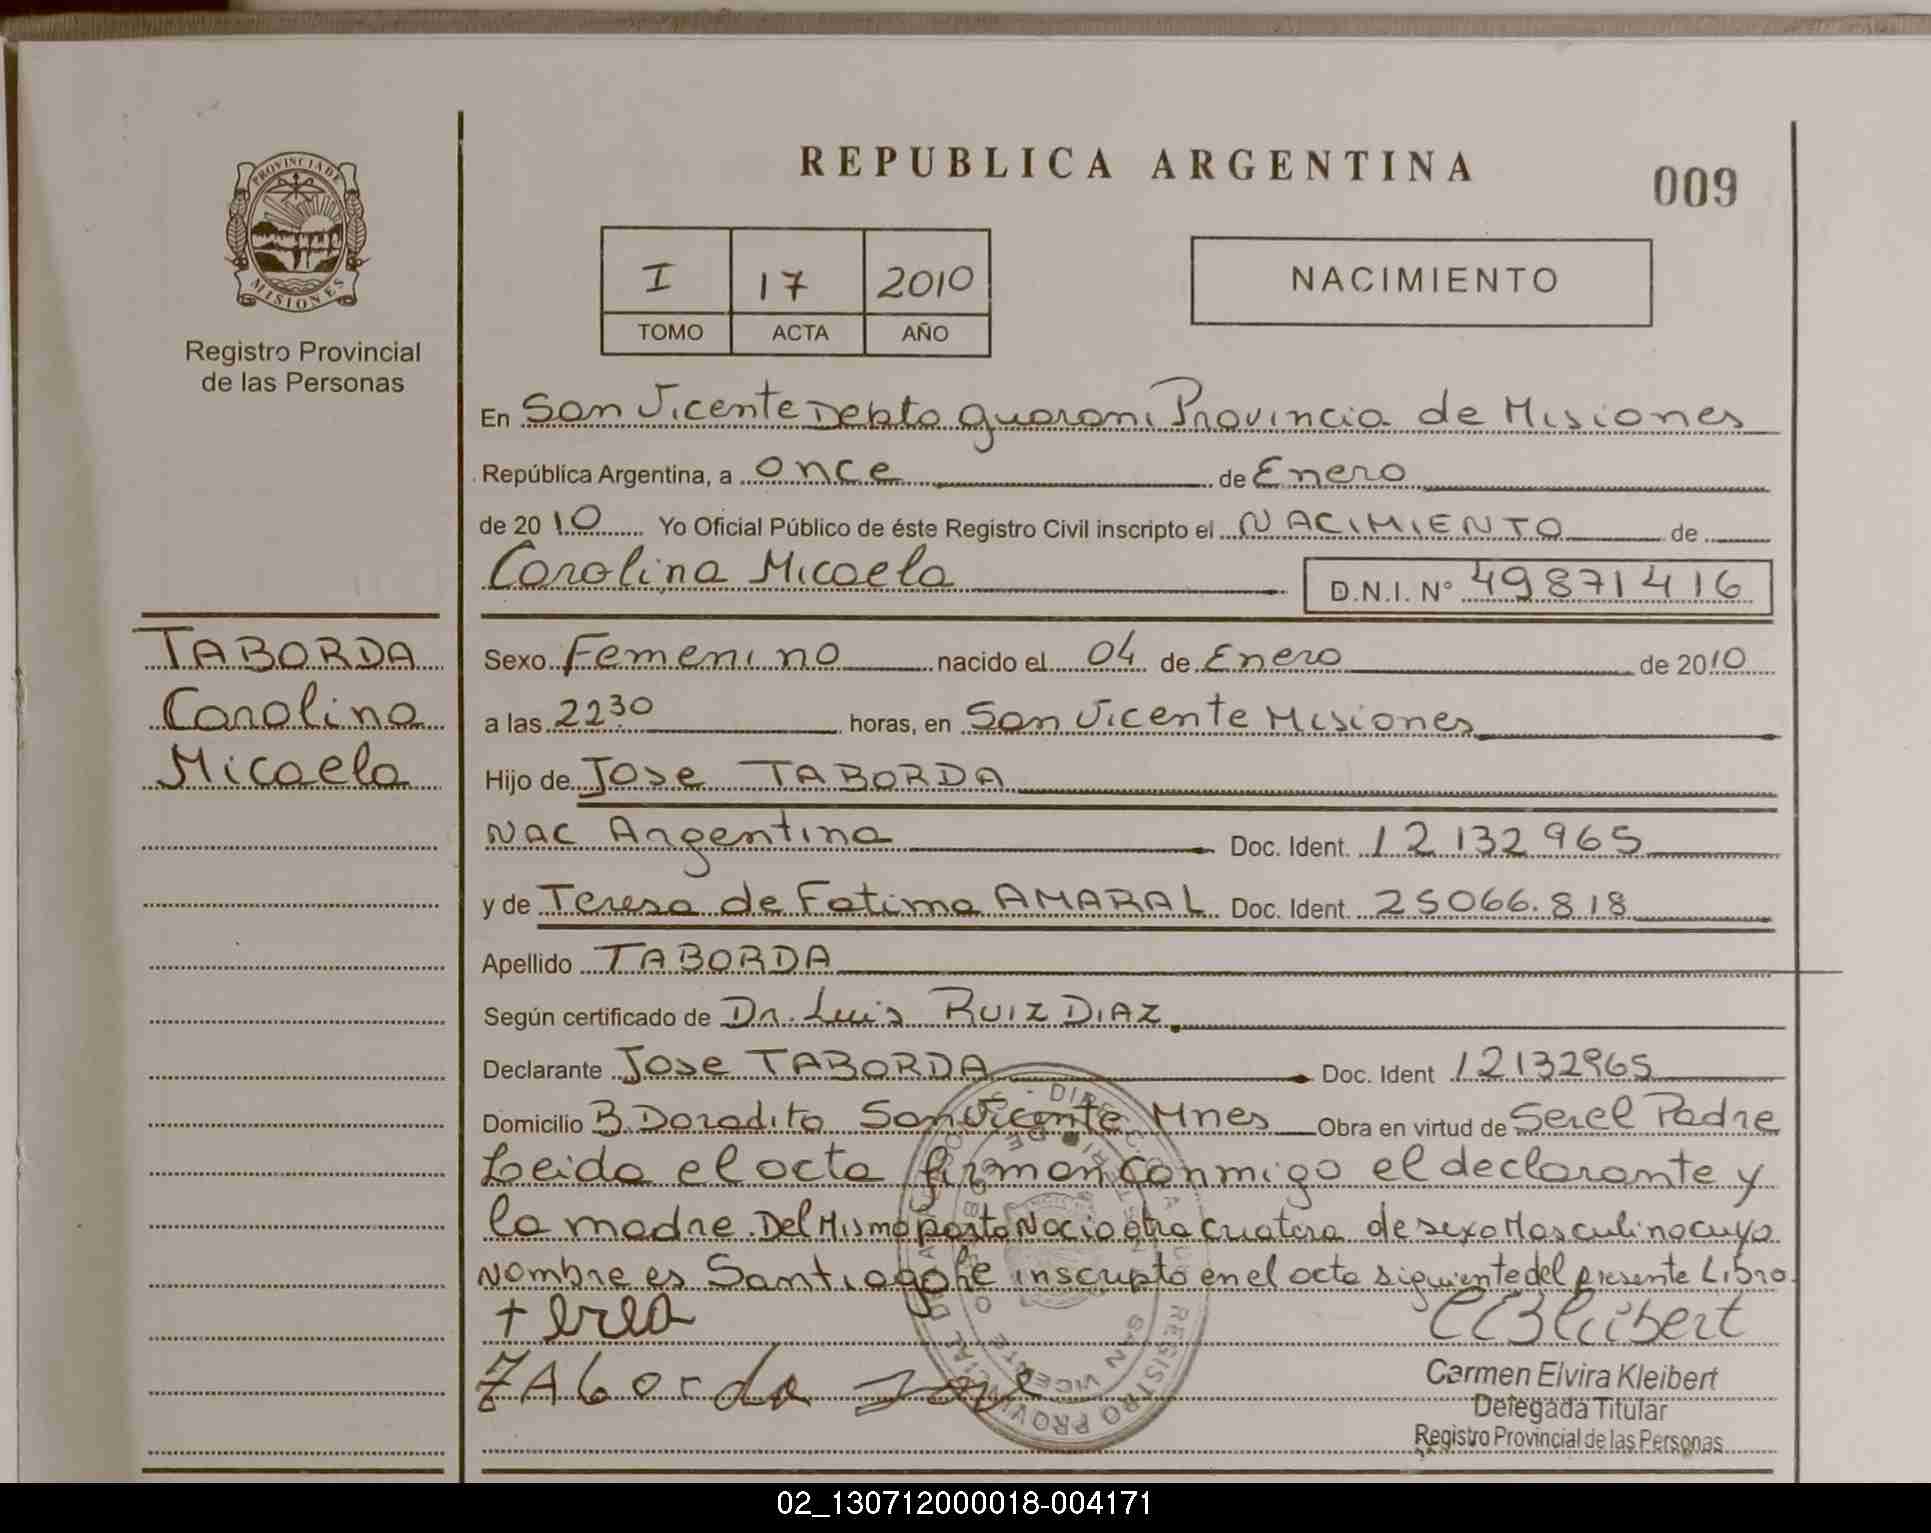 PROVINCIA DE
MISIONES
Registro Provincial
de las Personas
TABORDA
Carolina
Micaela
REPUBLICA ARGENTINA
009
I 17 2010
TOMO ACTA AÑO
NACIMIENTO
En San Vicente Depto Guarani Provincia de Misiones
República Argentina, a once de Enero
de 2010 Yo Oficial Público de éste Registro Civil inscripto el NACIMIENTO de
Carolina Micaela D.N.I. N° 49871416
Sexo Femenino nacido el 04 de Enero de 2010
a las 2230 horas, en San Vicente Misiones
Hijo de Jose TABORDA
NAC Argentina Doc. Ident. 12132965
y de Teresa de Fatima AMARAL Doc. Ident. 25066.818
Apellido TABORDA
Según certificado de Dr. Luis RUIZ DIAZ
Declarante Jose TABORDA Doc. Ident 12132965
Domicilio B. Doradito San Vicente Mnes Obra en virtud de Ser el Padre
Leida el acta firman conmigo el declarante y
la madre. Del Mismo parto Nacio otra criatura de sexo Masculino cuyo
Nombre es Santiago he inscripto en el acta siguiente del presente Libro
Taborda Jose
Carmen Elvira Kleibert
Delegada Titular
Registro Provincial de las Personas
02_130712000018-004171